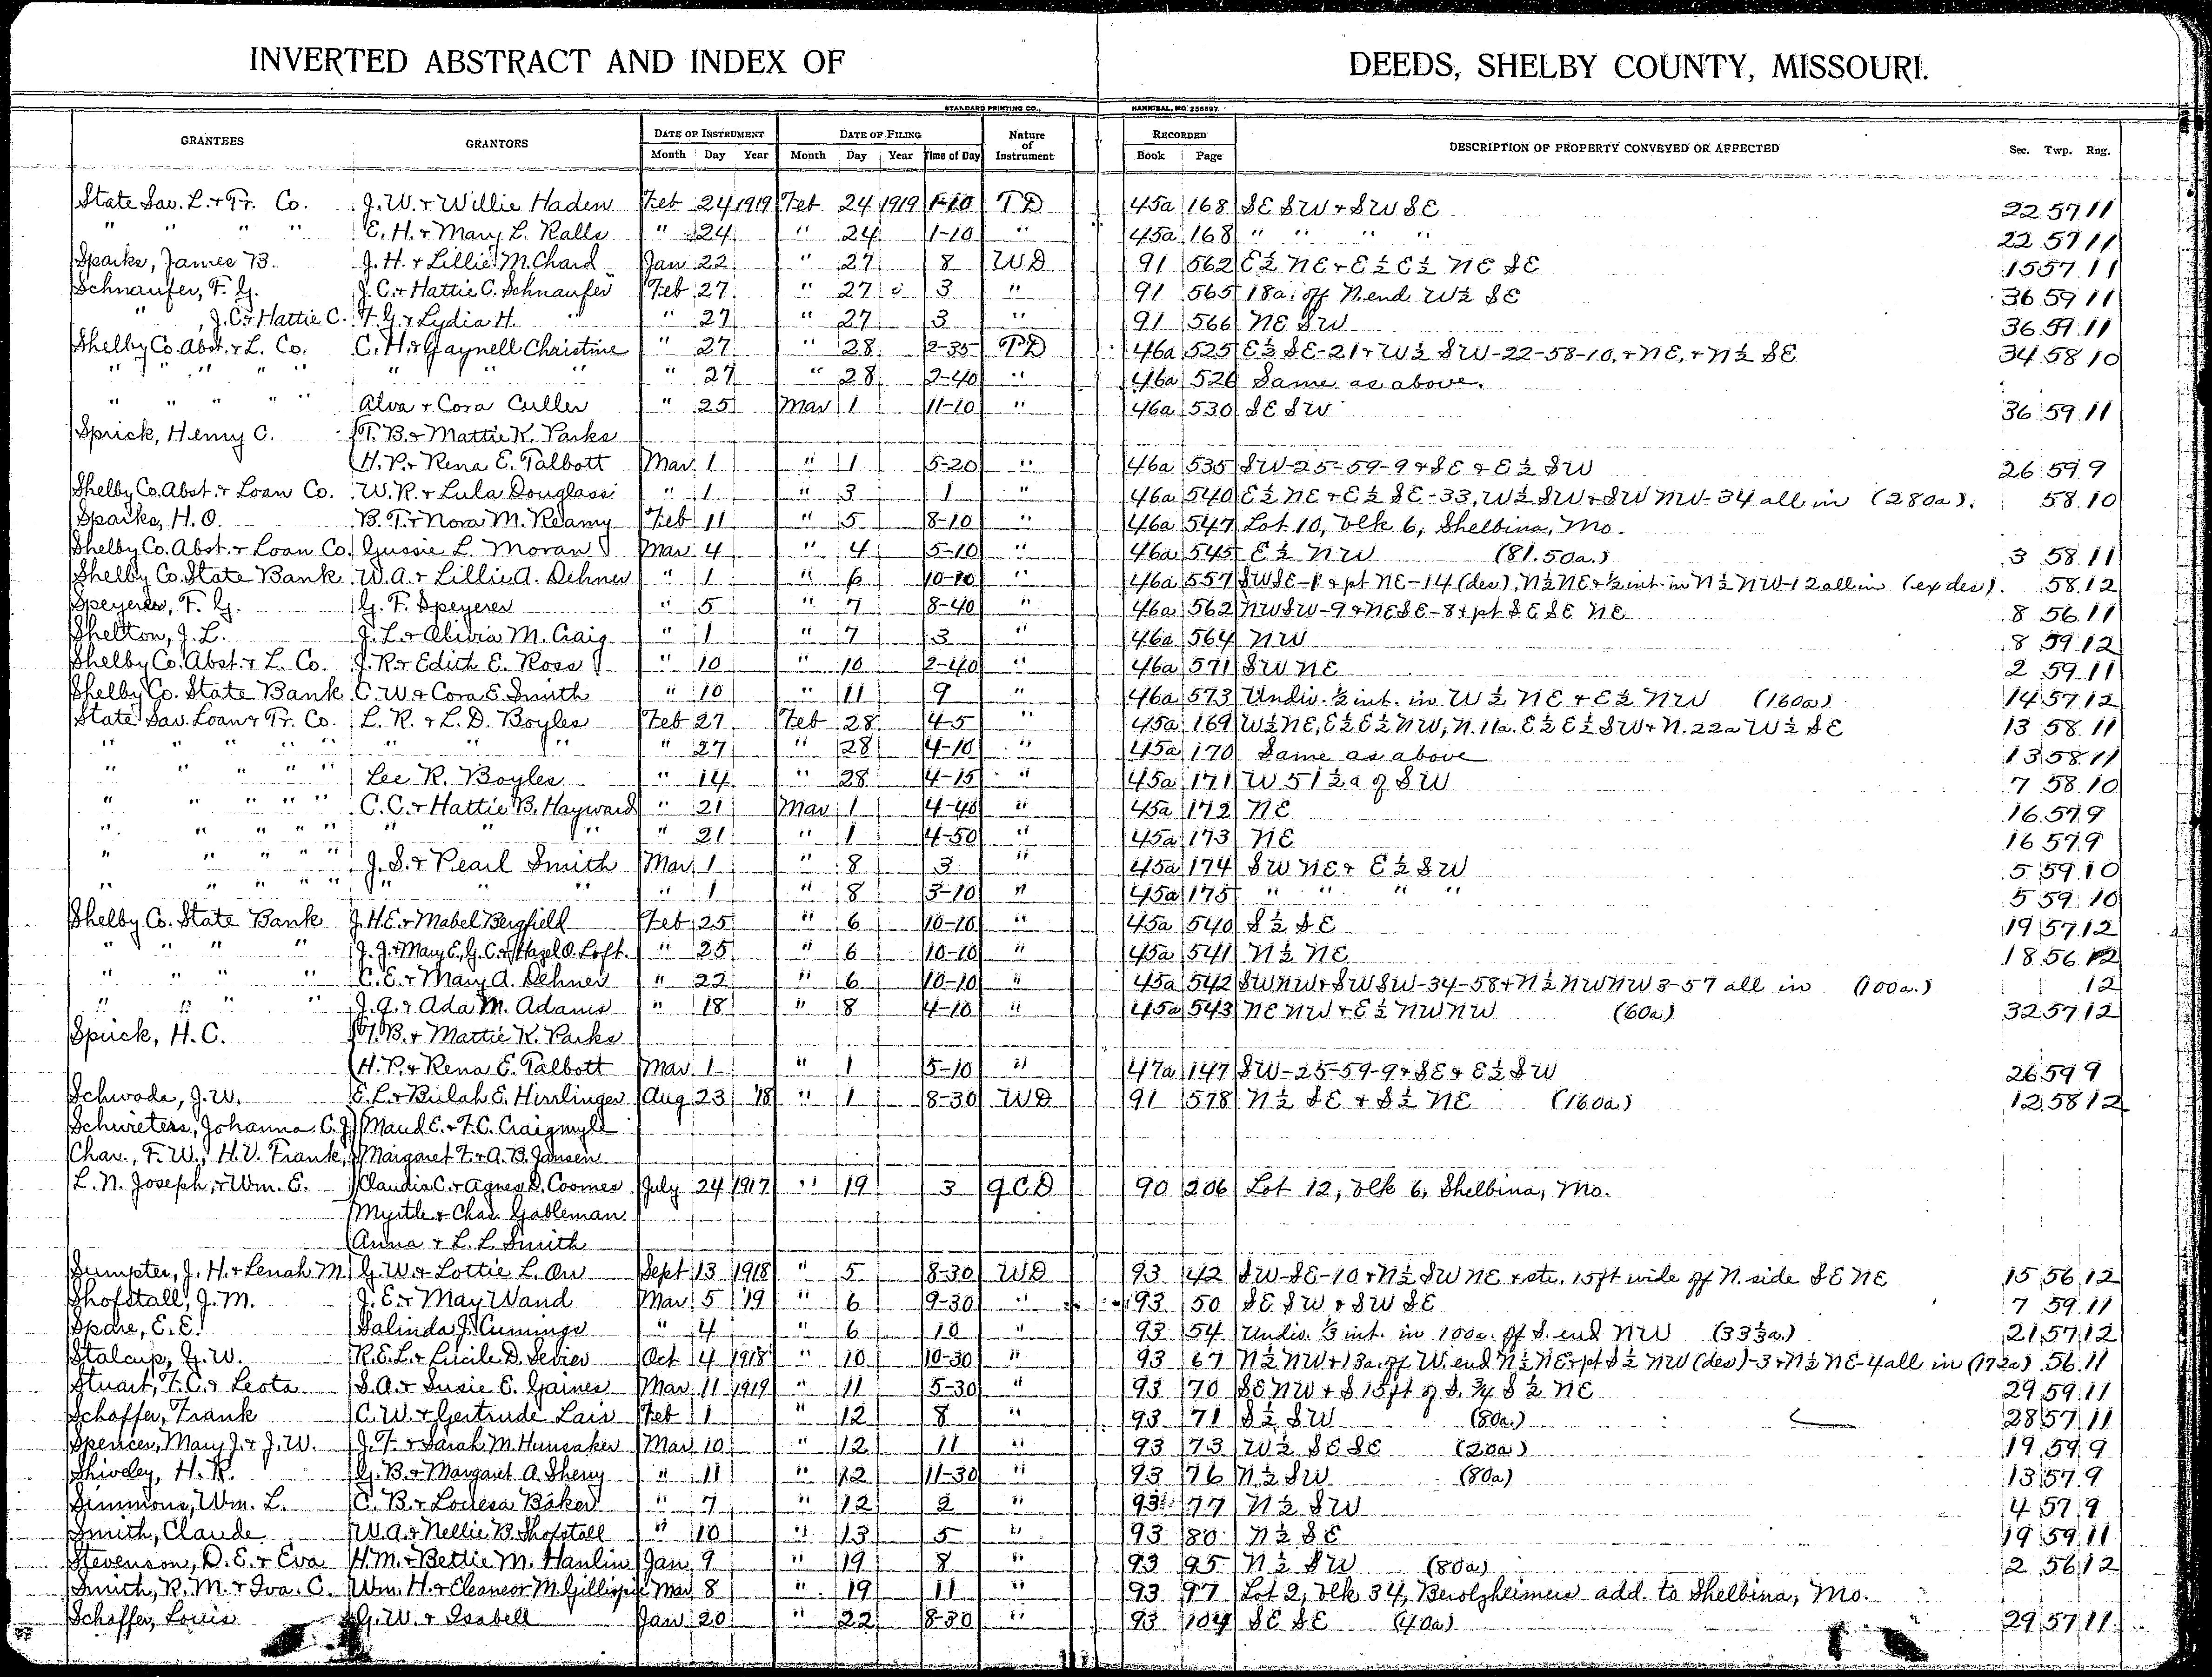 INVERTED ABSTRACT AND INDEX OF DEEDS, SHELBY COUNTY, MISSOURI.
STANDARD PRINTING CO., HANNIBAL, MO 256697
GRANTEES GRANTORS DATE OF INSTRUMENT DATE OF FILING Nature of Instrument RECORDED DESCRIPTION OF PROPERTY CONVEYED OR AFFECTED Sec. Twp. Rng.
Month Day Year Month Day Year Time of Day Book Page
State Sav. L. & Tr. Co. J. W. & Willie Haden Feb 24 1919 Feb 24 1919 1-10 TD 45a 168 SE SW & SW SE 22 57 11
" " " " E. H. & Mary L. Ralls " 24 " 24 1-10 " 45a 168 " " " " 22 57 11
Sparks, James B. J. H. & Lillie M. Chard Jan 22 " 27 8 WD 91 562 E½ NE & E½ E½ NE SE 15 57 11
Schnaufer, F. G. J. C. & Hattie C. Schnaufer Feb 27 " 27 3 " 91 565 18a. off N. end W½ SE 36 59 11
" , J. C. & Hattie C. F. G. & Lydia H. " " 27 " 27 3 " 91 566 NE SW 36 59 11
Shelby Co. Abst. & L. Co. C. H. & Gaynell Christine " 27 " 28 2-35 TD 46a 525 E½ SE-21 & W½ SW-22-58-10, & NE, & N½ SE 34 58 10
" " " " " " " " " 27 " 28 2-40 " 46a 526 Same as above.
" " " " " Alva & Cora Culler " 25 Mar 1 11-10 " 46a 530 SE SW 36 59 11
Sprick, Henry C. T. B. & Mattie K. Parks
H. P. & Rena E. Talbott Mar 1 " 1 5-20 " 46a 535 SW-25-59-9 & SE & E½ SW 26 59 9
Shelby Co. Abst. & Loan Co. W. R. & Lula Douglass " 1 " 3 1 " 46a 540 E½ NE & E½ SE-33, W½ SW & SW NW-34 all in (280a). 58 10
Sparks, H. O. B. T. & Nora M. Reamy Feb 11 " 5 8-10 " 46a 547 Lot 10, blk 6, Shelbina, Mo.
Shelby Co. Abst. & Loan Co. Gussie L. Moran Mar 4 " 4 5-10 " 46a 545 E½ NW (81.50a.) 3 58 11
Shelby Co. State Bank W. A. & Lillie A. Dehner " 1 " 6 10-10 " 46a 557 SWSE-1 & pt NE-14 (des), N½NE & ½ int. in N½ NW-12 all in (ex des). 58 12
Speyerer, F. G. G. F. Speyerer " 5 " 7 8-40 " 46a 562 NWSW-9 & NESE-8 & pt SE SE NE 8 56 11
Shelton, J. L. J. L. & Olivia M. Craig " 1 " 7 3 " 46a 564 NW 8 59 12
Shelby Co. Abst. & L. Co. J. R. & Edith E. Ross " 10 " 10 2-40 " 46a 571 SW NE 2 59 11
Shelby Co. State Bank C. W. & Cora E. Smith " 10 " 11 9 " 46a 573 Undiv. ½ int. in W½ NE & E½ NW (160a) 14 57 12
State Sav. Loan & Tr. Co. L. R. & L. D. Boyles Feb 27 Feb 28 4-5 " 45a 169 W½NE, E½E½NW, N. 11a. E½ E½ SW & N. 22a W½ SE 13 58 11
" " " " " " " " " 27 " 28 4-10 " 45a 170 Same as above 13 58 11
" " " " " Lee R. Boyles " 14 " 28 4-15 " 45a 171 W 51½a of SW 7 58 10
" " " " " C. C. & Hattie B. Hayward " 21 Mar 1 4-40 " 45a 172 NE 16 57 9
" " " " " " " " " 21 " 1 4-50 " 45a 173 NE 16 57 9
" " " " " J. S. & Pearl Smith Mar 1 " 8 3 " 45a 174 SW NE & E½ SW 5 59 10
" " " " " " " " " 1 " 8 3-10 " 45a 175 " " " " 5 59 10
Shelby Co. State Bank J. H. E. & Mabel Bergfield Feb 25 " 6 10-10 " 45a 540 S½ SE 19 57 12
" " " " J. J. & Mary E., G. C. & Hazel O. Loft. " 25 " 6 10-10 " 45a 541 N½ NE 18 56 12
" " " " C. E. & Mary A. Dehner " 22 " 6 10-10 " 45a 542 SWNW & SWSW-34-58 & N½ NWNW 3-57 all in (100a.) 12
" " " " J. Q. & Ada M. Adams " 18 " 8 4-10 " 45a 543 NE NW & E½ NWNW (60a) 32 57 12
Sprick, H. C. T. B. & Mattie K. Parks
H. P. & Rena E. Talbott Mar 1 " 1 5-10 " 47a 147 SW-25-59-9 & SE & E½ SW 26 59 9
Schwada, J. W. E. L. & Bulah E. Hirrlinger Aug 23 '18 " 1 8-30 WD 91 578 N½ SE & S½ NE (160a) 12 58 12
Schwieters, Johanna C. J. Maud E. & F. C. Craigmyle
Chas., F. W., H. V. Frank, Margaret F. & A. B. Jansen
L. N. Joseph, & Wm. E. Claudia C. & Agnes D. Coomes July 24 1917 " 19 3 QCD 90 206 Lot 12, blk 6, Shelbina, Mo.
Myrtle & Chas. Gableman
Anna & L. L. Smith
Sumpter, J. H. & Lenah M. G. W. & Lottie L. Orr Sept 13 1918 " 5 8-30 WD 93 42 SW-SE-10 & N½ SW NE & str. 15ft wide off N. side SE NE 15 56 12
Shofstall, J. M. J. E. & May Wand Mar 5 '19 " 6 9-30 " 93 50 SE SW & SW SE 7 59 11
Spare, E. E. Salinda J. Cumings " 4 " 6 10 " 93 54 Undiv. ⅓ int. in 100a. off S. end NW (33⅓a.) 21 57 12
Stalcup, G. W. R. E. L. & Lucile D. Sevier Oct 4 1918 " 10 10-30 " 93 67 N½ NW & 13a. off W. end N½ NE & pt S½ NW (des)-3 & N½ NE-4 all in (172a) 56 11
Stuart, F. C. & Leota S. A. & Susie E. Gaines Mar 11 1919 " 11 5-30 " 93 70 SE NW & S 15ft of S. ¾ S½ NE 29 59 11
Schaffer, Frank C. W. & Gertrude Lair Feb 1 " 12 8 " 93 71 S½ SW (80a.) 28 57 11
Spencer, Mary J. & J. W. J. F. & Sarah M. Hunsaker Mar 10 " 12 11 " 93 73 W½ SE SE (20a) 19 59 9
Shively, H. R. G. B. & Margaret A. Sherry " 11 " 12 11-30 " 93 76 N½ SW (80a) 13 57 9
Simmons, Wm. L. C. B. & Louesa Baker " 7 " 12 2 " 93 77 N½ SW 4 57 9
Smith, Claude W. A. & Nellie B. Shofstall " 10 " 13 5 " 93 80 N½ SE 19 59 11
Stevenson, D. E. & Eva H. M. & Bettie M. Hanlin Jan 9 " 19 8 " 93 95 N½ SW (80a) 2 56 12
Smith, R. M. & Iva C. Wm. H. & Eleaneor M. Gillispie Mar 8 " 19 11 " 93 97 Lot 2, blk 34, Berolzheimers add. to Shelbina, Mo.
Schaffer, Louis G. W. & Isabell Jan 20 " 22 8-30 " 93 104 SE SE (40a) 29 57 11